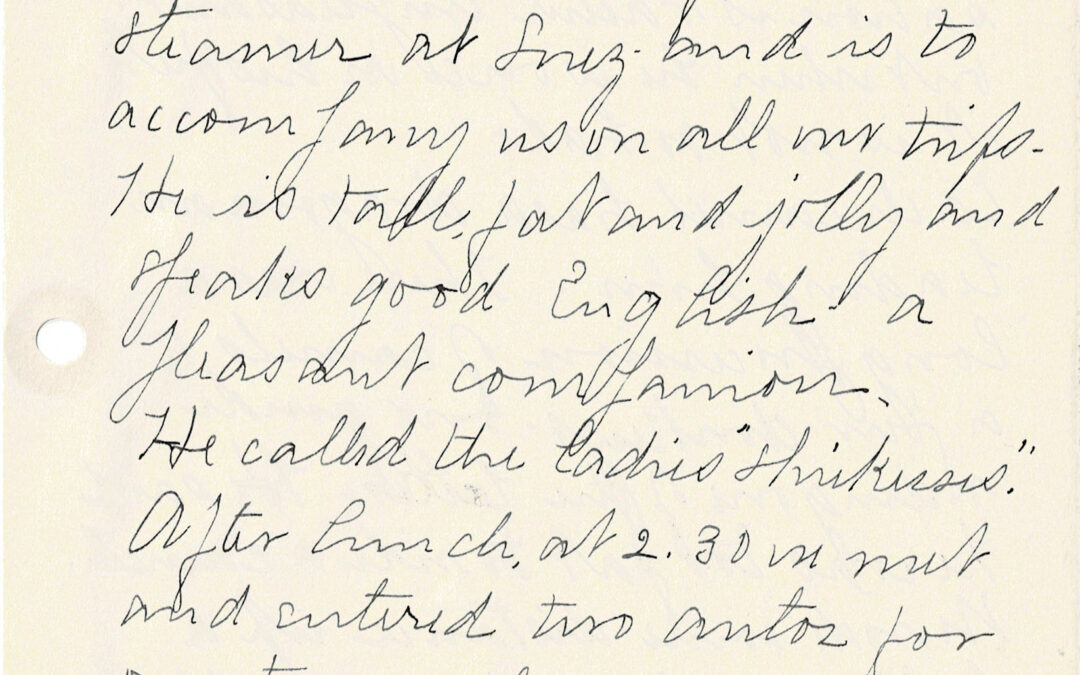 steamer at Suez and is to
accompany us on all our trips.
He is tall, fat and jolly and
speaks good English - a
pleasant companion.
He called the Ladies "Shiekesses."
After lunch, at 2.30 we met
and entered two autos for